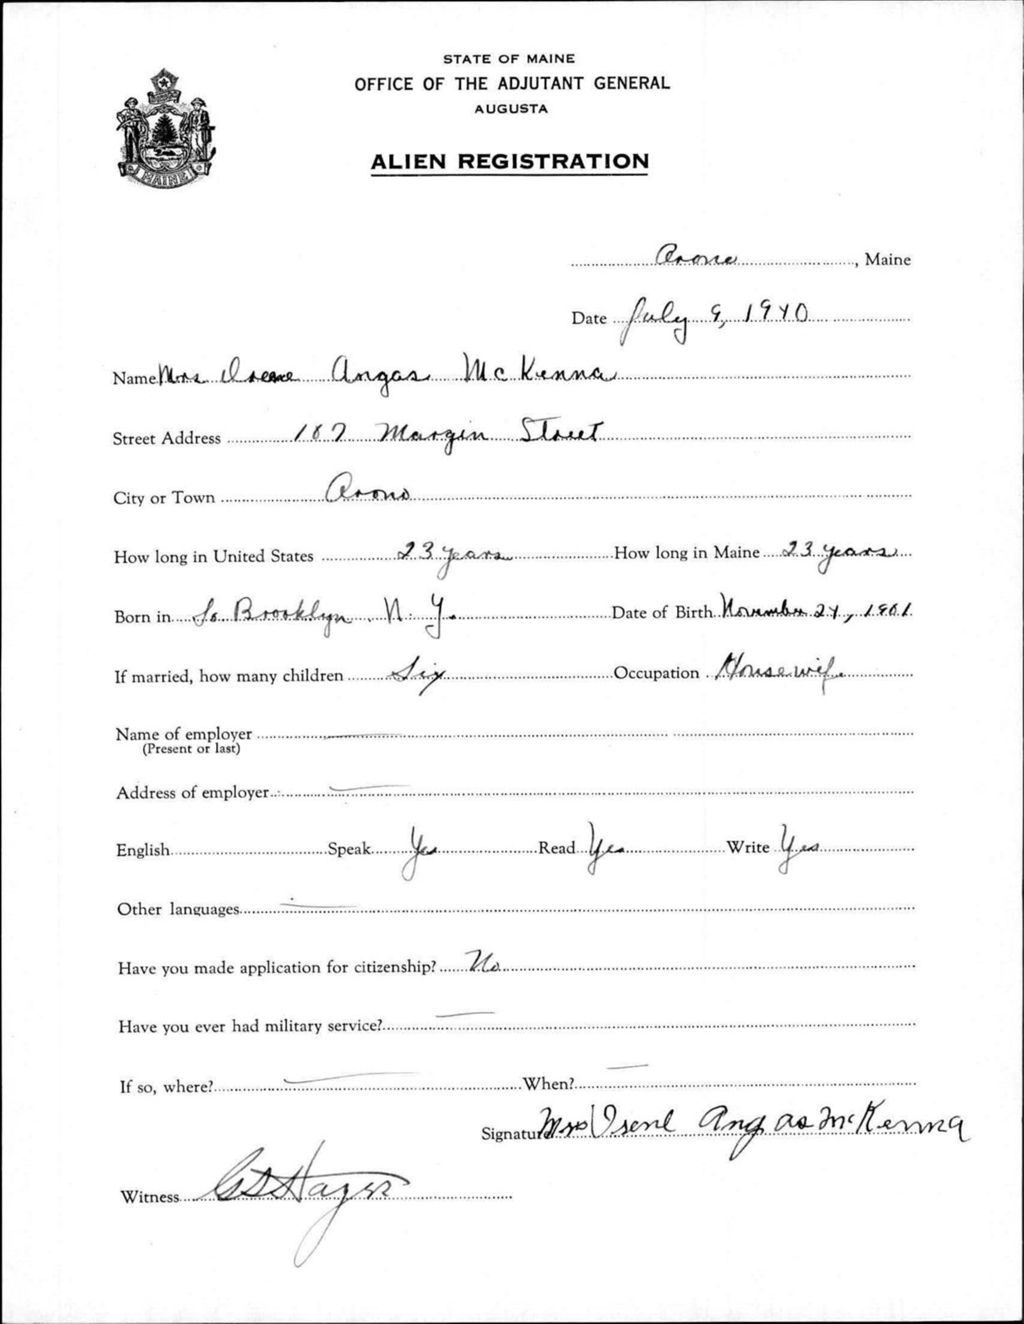 STATE OF MAINE
OFFICE OF THE ADJUTANT GENERAL
AUGUSTA
ALIEN REGISTRATION
MAINE
Orono, Maine
Date July 9, 1940
Name Mrs Irene Angas McKenna
Street Address 107 Margin Street
City or Town Orono
How long in United States 23 years How long in Maine 23 years
Born in So Brooklyn. N. Y. Date of Birth November 24, 1901
If married, how many children Six Occupation Housewife
Name of employer
(Present or last)
Address of employer
English Speak Yes Read Yes Write Yes
Other languages
Have you made application for citizenship? No
Have you ever had military service?
If so, where? When?
Signature Mrs Irene Angas McKenna
Witness